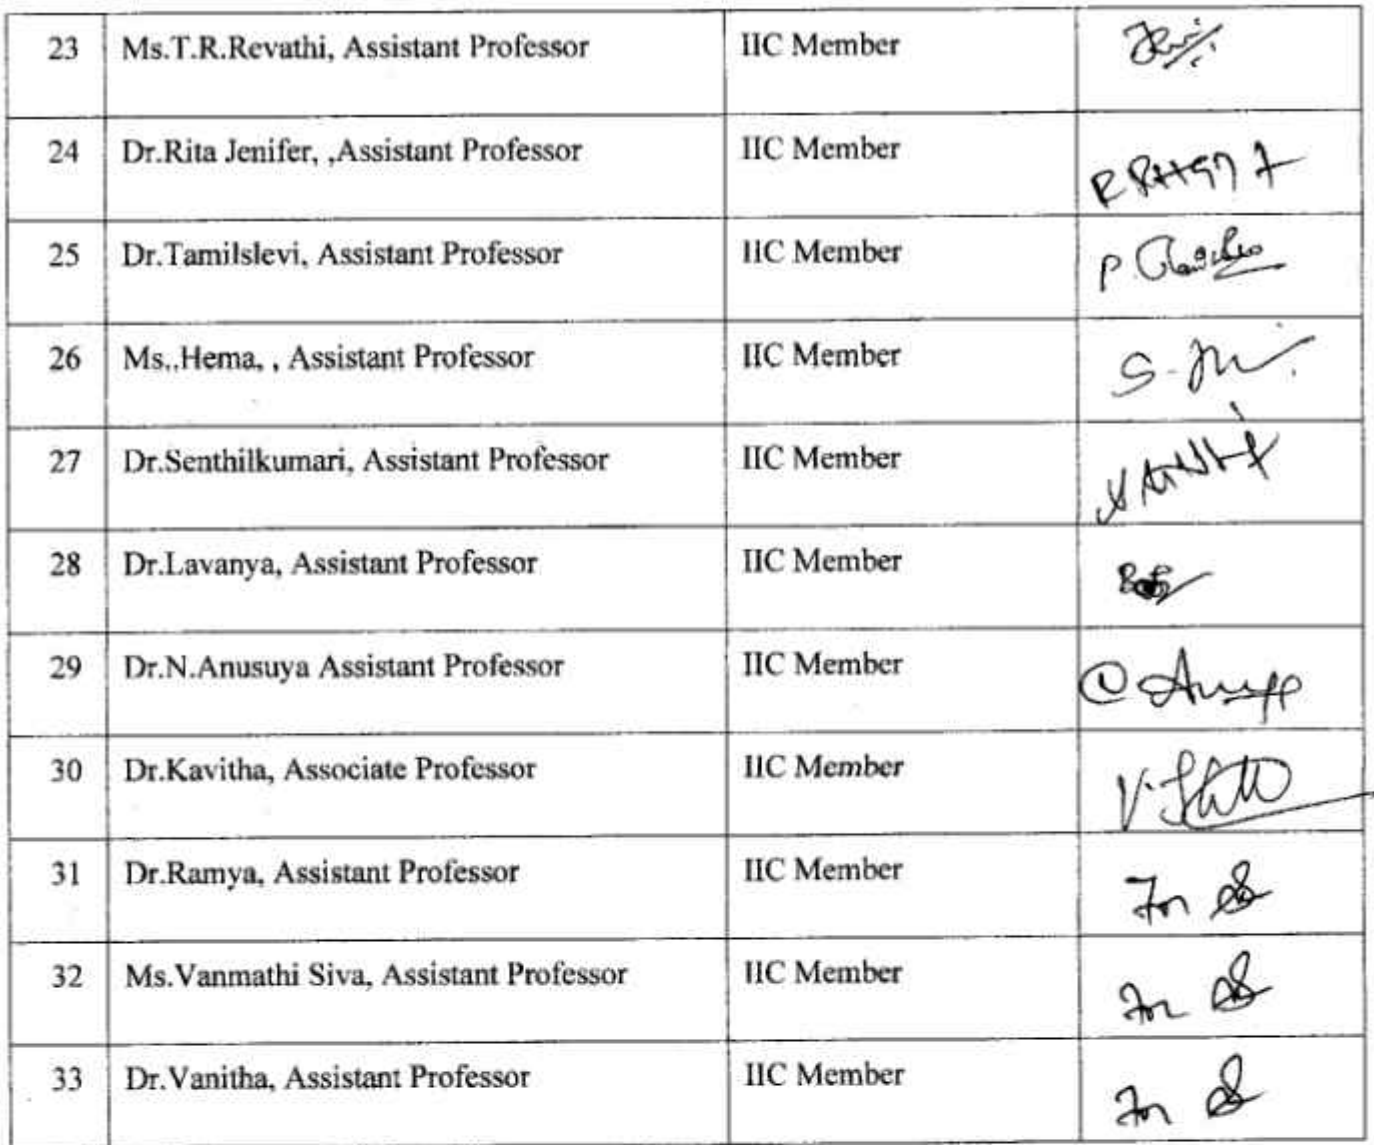 23 Ms.T.R.Revathi, Assistant Professor IIC Member
24 Dr.Rita Jenifer, ,Assistant Professor IIC Member
25 Dr.Tamilslevi, Assistant Professor IIC Member P.
26 Ms,.Hema, , Assistant Professor IIC Member S.
27 Dr.Senthilkumari, Assistant Professor IIC Member
28 Dr.Lavanya, Assistant Professor IIC Member
29 Dr.N.Anusuya Assistant Professor IIC Member
30 Dr.Kavitha, Associate Professor IIC Member V.
31 Dr.Ramya, Assistant Professor IIC Member For
32 Ms.Vanmathi Siva, Assistant Professor IIC Member For
33 Dr.Vanitha, Assistant Professor IIC Member For